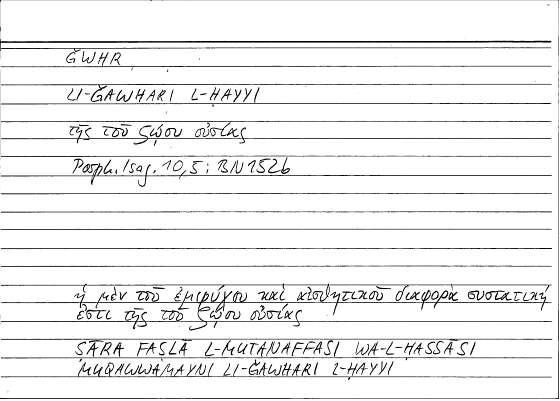 ǦWHR
LI-ǦAWHARI L-ḤAYYI
τῆς τοῦ ζῴου οὐσίας
Porph. Isag. 10,5: BN 152b
ἡ μὲν τοῦ ἐμψύχου καὶ αἰσθητικοῦ διαφορὰ συστατική
ἐστι τῆς τοῦ ζῴου οὐσίας
ṢĀRA FAṢLĀ L-MUTANAFFASI WA-L-ḤASSĀSI
MUQAWWAMAYNI LI-ǦAWHARI L-ḤAYYI